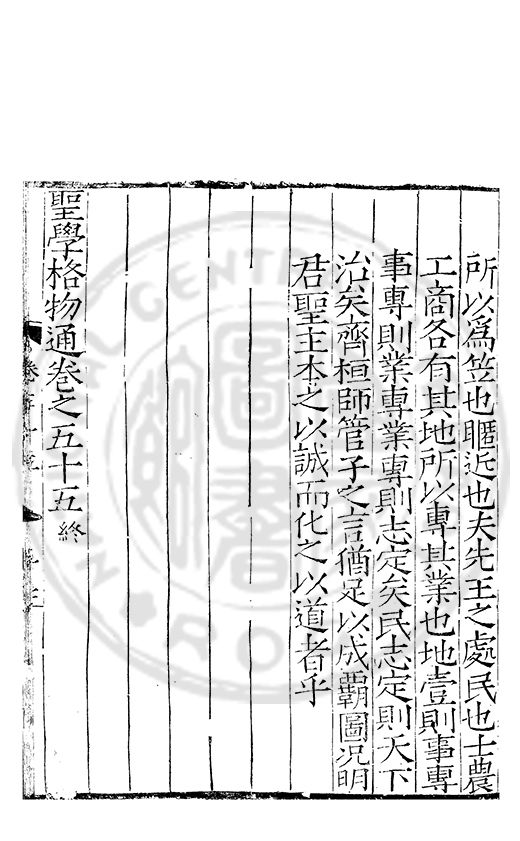 所以爲笠也暱近也夫先王之處民也士農
工商各有其地所以專其業也地壹則事專
事專則業專業專則志定矣民志定則天下
治矣齊桓師管子之言猶足以成覇圖况明
君聖主本之以誠而化之以道者乎
聖學格物通卷之五十五終